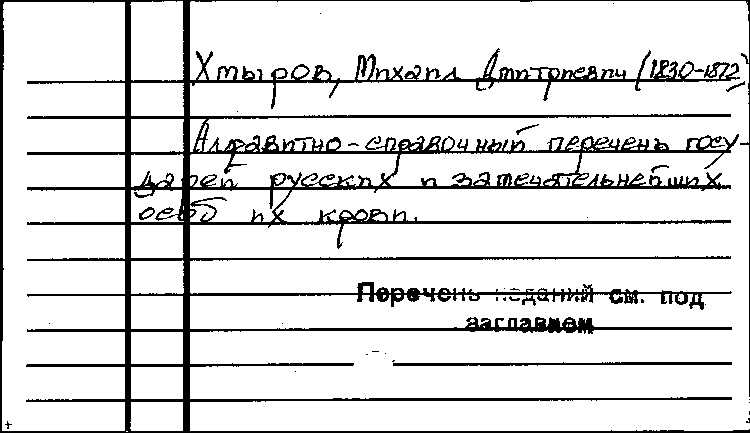 Хмыров, Михаил Дмитриевич (1830-1872)
Алфавитно-справочный перечень госу-
дарей русских и замечательнейших
особ их крови.
Перечень изданий см. под
заглавием